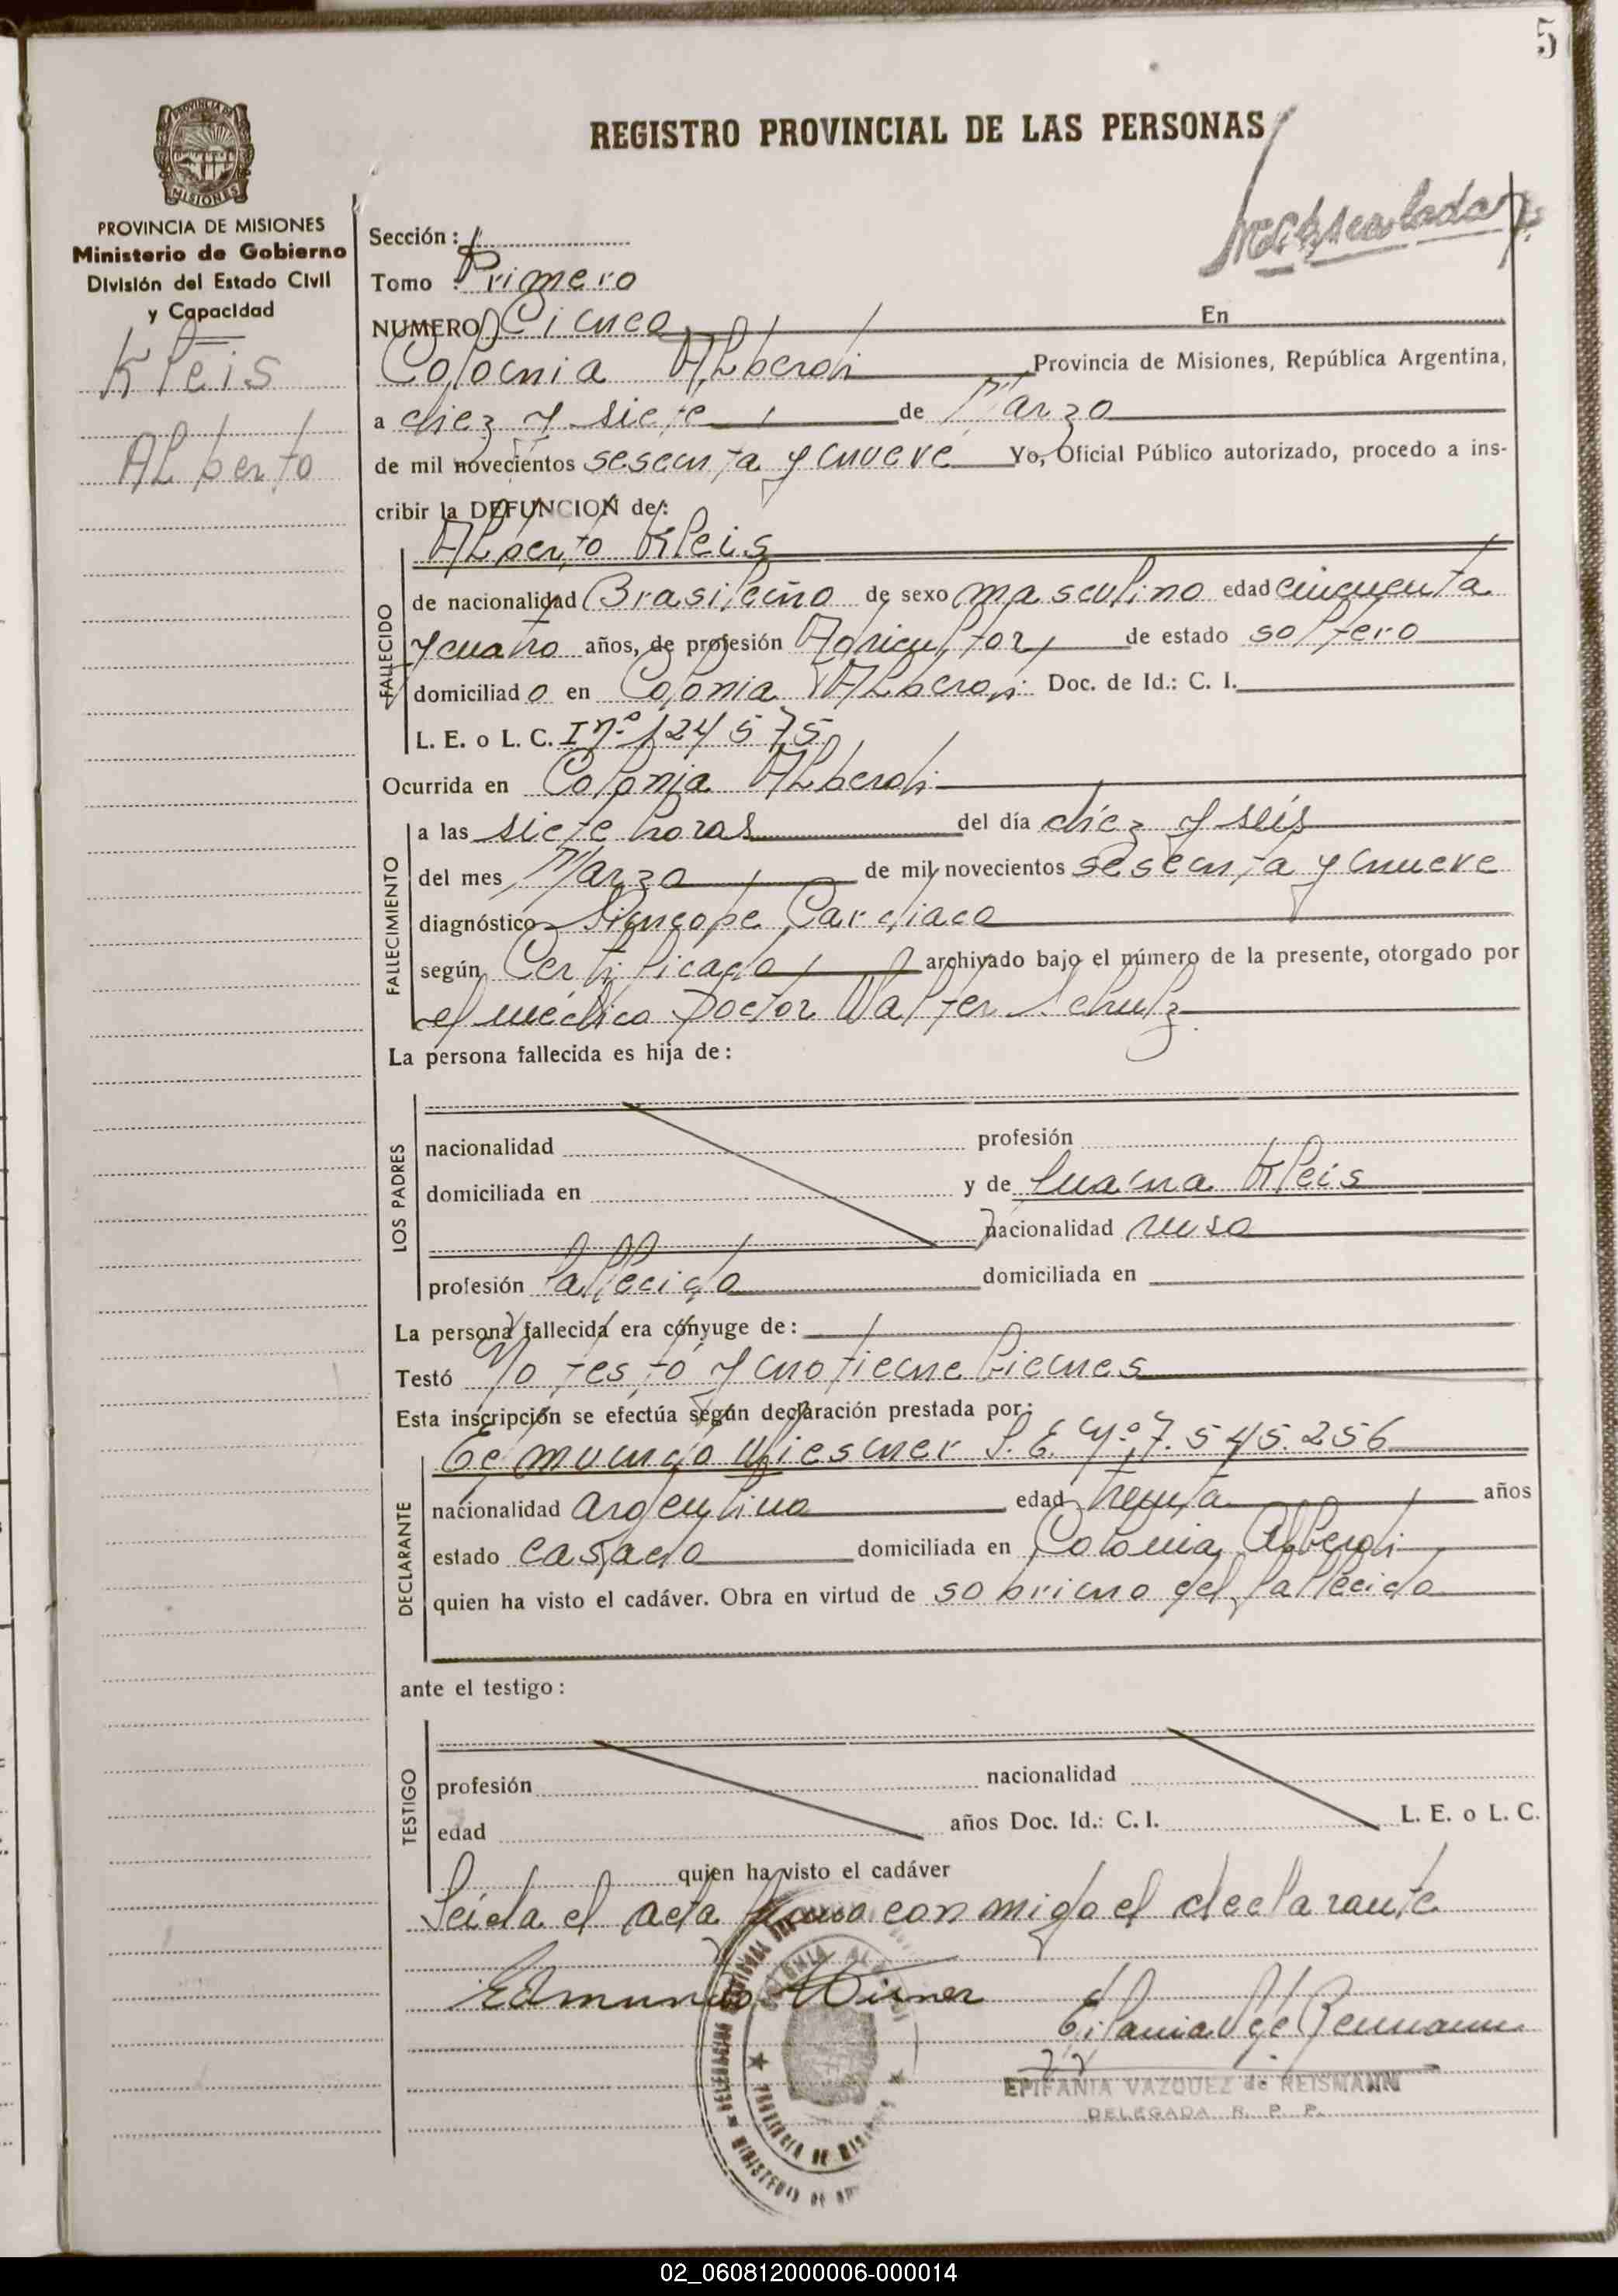 5
REGISTRO PROVINCIAL DE LAS PERSONAS
PROVINCIA DE
MISIONES
PROVINCIA DE MISIONES
Ministerio de Gobierno
División del Estado Civil
y Capacidad
Kleis
Alberto
Sección: 1
Tomo : Primero
NUMERO Cinco En
Colonia Alberdi Provincia de Misiones, República Argentina,
a diez y siete de Marzo
de mil novecientos sesenta y nueve Yo, Oficial Público autorizado, procedo a ins-
cribir la DEFUNCION de:
FALLECIDO
Alberto Kleis
de nacionalidad Brasileño de sexo masculino edad cincuenta
y cuatro años, de profesión Agricultor de estado soltero
domiciliado en Colonia Alberdi Doc. de Id.: C. I.
L. E. o L. C. I nº 124575
Ocurrida en Colonia Alberdi
FALLECIMIENTO
a las siete horas del día diez y seis
del mes Marzo de mil novecientos sesenta y nueve
diagnóstico Sincope Cardiaco
según Certificado archivado bajo el número de la presente, otorgado por
el médico Doctor Walter Schulz
La persona fallecida es hija de:
LOS PADRES
nacionalidad profesión
domiciliada en y de Juana Kleis
nacionalidad ruso
profesión fallecido domiciliada en
La persona fallecida era cónyuge de:
Testó No testó y no tiene bienes
Esta inscripción se efectúa según declaración prestada por:
DECLARANTE
Edmundo Wiesner L. E. Nº 7.545.256
nacionalidad argentino edad treinta años
estado casado domiciliada en Colonia Alberdi
quien ha visto el cadáver. Obra en virtud de sobrino del fallecido
ante el testigo:
TESTIGO
profesión nacionalidad
edad años Doc. Id.: C. I. L. E. o L. C.
quien ha visto el cadáver
Leida el acta firma conmigo el declarante
Edmundo Wisner
EPIFANIA VAZQUEZ de REISMANN
DELEGADA R. P. P.
PROVINCIA DE MISIONES
MINISTERIO DE
02_060812000006-000014